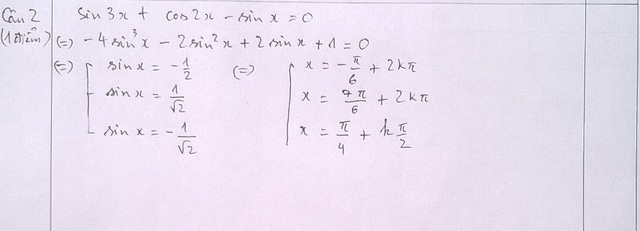 Câu 2 sin 3x + cos 2x - sin x = 0
(1 điểm) (=) -4 sin³x - 2 sin²x + 2 sin x + 1 = 0
(=) [ sin x = -1/2 (=) [ x = -π/6 + 2kπ
sin x = 1/√2 x = 7π/6 + 2kπ
sin x = -1/√2 x = π/4 + k π/2